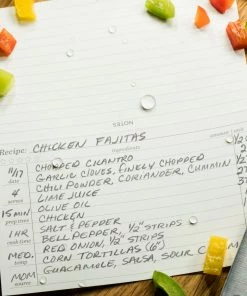 NOTES
Recipe: CHICKEN FAJITAS
ingredients
11/17 CHOPPED CILANTRO 1/2
date GARLIC CLOVES, FINELY CHOPPED
4 CHILI POWDER, CORIANDER, CUMMIN
serves LIME JUICE
15 MIN OLIVE OIL
prep time CHICKEN
1 HR SALT & PEPPER
cook time BELL PEPPER, 1/2" STRIPS
MED. RED ONION, 1/2" STRIPS
temp CORN TORTILLAS (6")
MOM GUACAMOLE, SALSA, SOUR
source